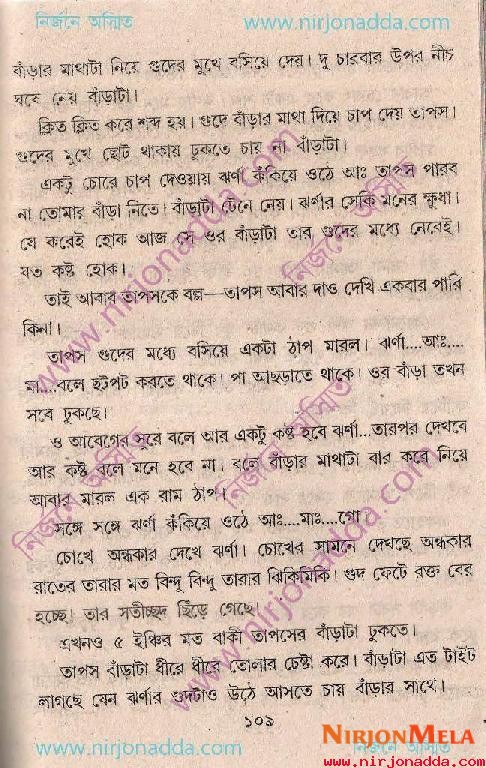 নির্জনে অস্মিত www.nirjonadda.com
বাঁড়ার মাথাটা নিয়ে গুদের মুখে বসিয়ে দেয়। দু চারবার উপর নীচ
ঘষে নেয় বাঁড়াটা।
ক্লিত ক্লিত করে শব্দ হয়। গুদে বাঁড়ার মাথা দিয়ে চাপ দেয় তাপস।
গুদের মুখে ছোট থাকায় ঢুকতে চায় না বাঁড়াটা।
একটু চোরে চাপ দেওয়ায় ঝর্ণা কঁকিয়ে ওঠে আঃ তাপস পারব
না তোমার বাঁড়া নিতে। বাঁড়াটা টেনে নেয়। ঝর্ণার সেকি মনের ক্ষুধা।
যে করেই হোক আজ সে ওর বাঁড়াটা তার গুদের মধ্যে নেবেই।
যত কষ্ট হোক।
তাই আবার তাপসকে বল্ল—তাপস আবার দাও দেখি একবার পারি
কিনা।
তাপস গুদের মধ্যে বসিয়ে একটা ঠাপ মারল। ঝর্ণা....আঃ....
মা....বলে ছটপট করতে থাকে। পা আছড়াতে থাকে। ওর বাঁড়া তখন
সবে ঢুকছে।
ও আবেগের সুরে বলে আর একটু কষ্ট হবে ঝর্ণা...তারপর দেখবে
আর কষ্ট বলে মনে হবে মা। বলে বাঁড়ার মাথাটা বার করে নিয়ে
আবার মারল এক রাম ঠাপ।
সঙ্গে সঙ্গে ঝর্ণা কঁকিয়ে ওঠে আঃ....মাঃ....গো।
চোখে অন্ধকার দেখে ঝর্ণা। চোখের সামনে দেখছে অন্ধকার
রাতের তারার মত বিন্দু বিন্দু তারার ঝিকিমিকি। গুদ ফেটে রক্ত বের
হচ্ছে। তার সতীচ্ছদ ছিঁড়ে গেছে।
এখনও ৫ ইঞ্চির মত বাকী তাপসের বাঁড়াটা ঢুকতে।
তাপস বাঁড়াটা ধীরে ধীরে তোলার চেষ্টা করে। বাঁড়াটা এত টাইট
লাগছে যেন ঝর্ণার গুদটাও উঠে আসতে চায় বাঁড়ার সাথে।
১০৯
NIRJONMELA
www.nirjonadda.com নির্জনে অস্মিত
www.nirjonadda.com
www.nirjonadda.com
নির্জনে অস্মিত
www.nirjonadda.com
নির্জনে অস্মিত
নির্জনে অস্মিত
www.nirjonadda.com